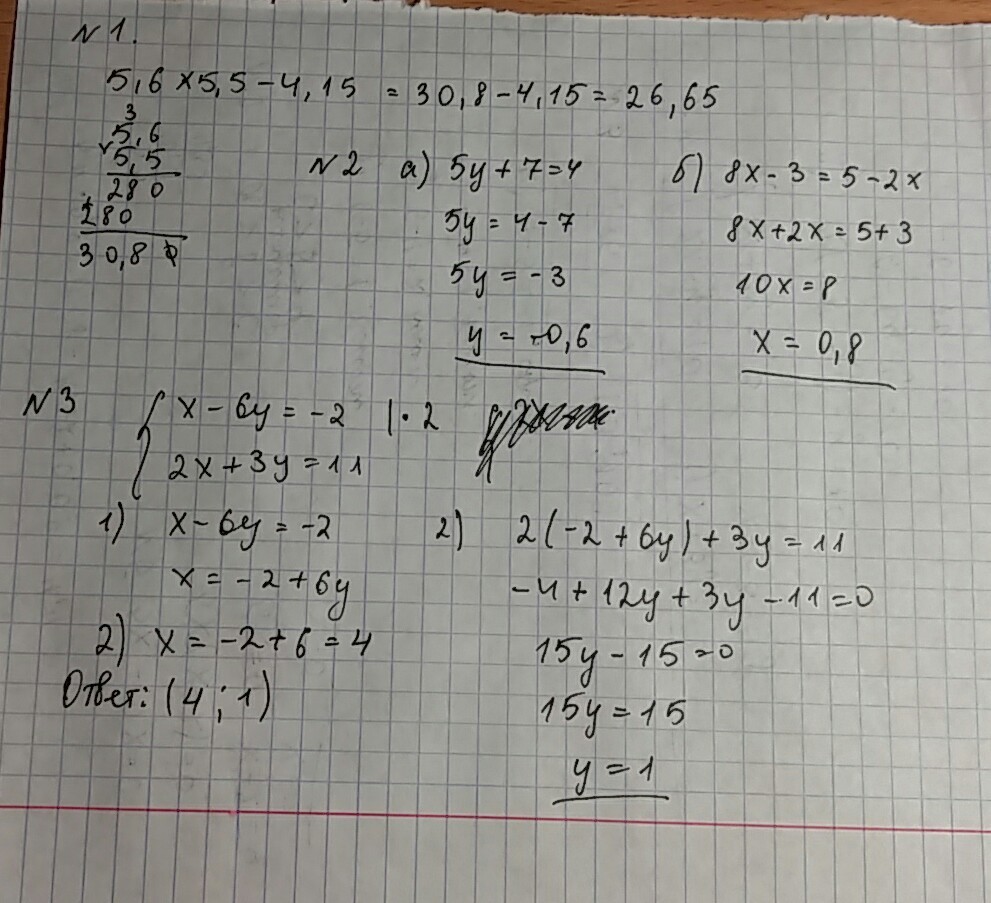 N 1.
5,6 × 5,5 – 4,15 = 30,8 – 4,15 = 26,65
3
× 5,6
5,5
280
+ 280
30,8 0
N 2 а) 5y + 7 = 4
5y = 4 - 7
5y = - 3
y = -0,6
б) 8x - 3 = 5 - 2x
8x + 2x = 5 + 3
10x = 8
x = 0,8
N 3
{ x - 6y = -2 | · 2
2x + 3y = 11
1) x - 6y = -2
x = -2 + 6y
2) 2(-2 + 6y) + 3y = 11
-4 + 12y + 3y - 11 = 0
15y - 15 = 0
15y = 15
y = 1
2) x = -2 + 6 = 4
Ответ: (4 ; 1)